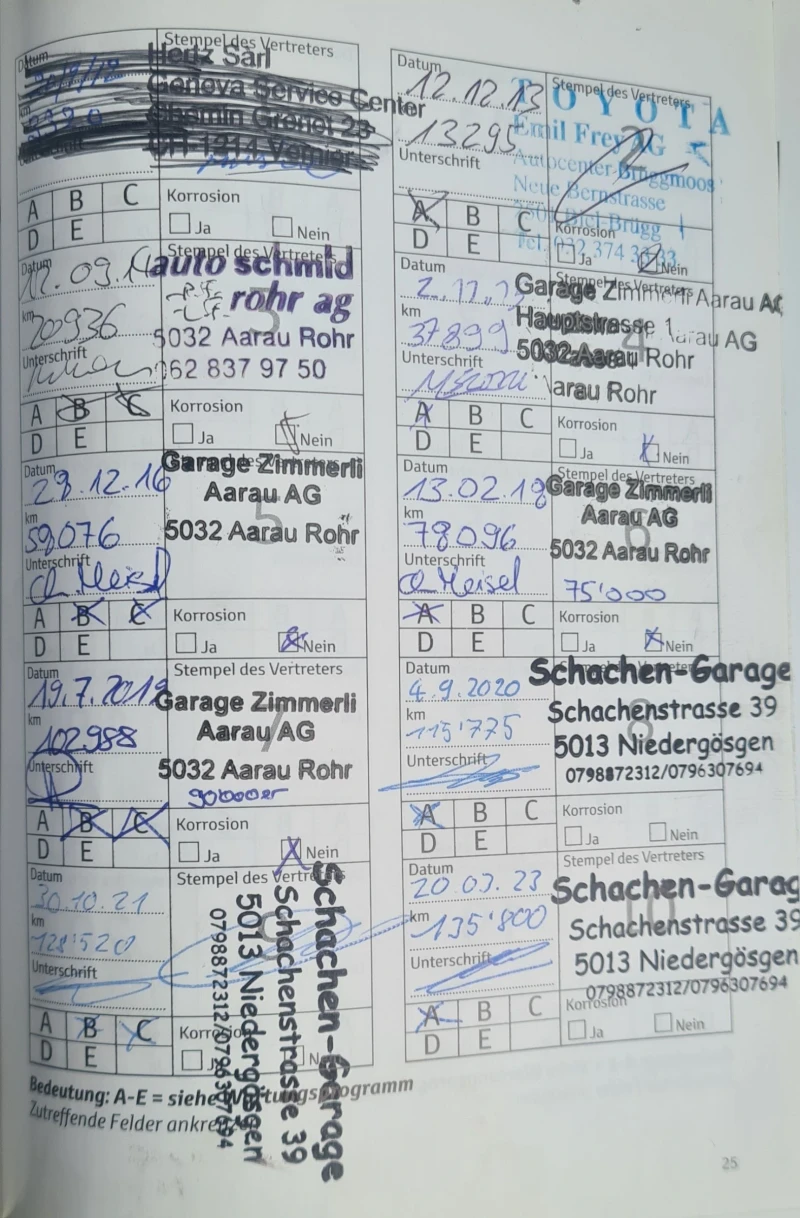 Datum
Stempel des Vertreters
Hertz Sàrl
Geneva Service Center
Chemin Grenet 23
CH-1214 Vernier
km
A B C
D E
Korrosion
Ja Nein
Datum
12.12.13
13295
Unterschrift
Stempel des Vertreters
2
TOYOTA
Emil Frey AG
Autocenter Brüggmoos
Neue Bernstrasse
Biel-Brügg
Tel. 032 374 33 33
A B C
D E
Korrosion
Ja Nein
Datum
12.09.14
km
20936
Unterschrift
Stempel des Vertreters
3
auto schmid
rohr ag
5032 Aarau Rohr
062 837 97 50
A B C
D E
Korrosion
Ja Nein
Datum
km
37899
Unterschrift
Stempel des Vertreters
4
Garage Zimmerli Aarau AG
Hauptstrasse 1
5032 Aarau Rohr
Aarau AG
Aarau Rohr
A B C
D E
Korrosion
Ja Nein
Datum
29.12.16
km
59076
Unterschrift
5
Garage Zimmerli
Aarau AG
5032 Aarau Rohr
A B C
D E
Korrosion
Ja Nein
Datum
13.02.18
km
78096
Unterschrift
Stempel des Vertreters
6
Garage Zimmerli
Aarau AG
5032 Aarau Rohr
75'000
A B C
D E
Korrosion
Ja Nein
Datum
19.7.2019
km
102988
Unterschrift
Stempel des Vertreters
7
Garage Zimmerli
Aarau AG
5032 Aarau Rohr
90000er
A B C
D E
Korrosion
Ja Nein
Datum
4.9.2020
km
115'775
Unterschrift
8
Schachen-Garage
Schachenstrasse 39
5013 Niedergösgen
0798872312/0796307694
A B C
D E
Korrosion
Ja Nein
Datum
30.10.21
km
128'520
Unterschrift
Stempel des Vertreters
Schachen-Garage
Schachenstrasse 39
5013 Niedergösgen
0798872312/0796307694
A B C
D E
Korrosion
Ja Nein
Datum
20.03.23
km
135'800
Unterschrift
Stempel des Vertreters
10
Schachen-Garag
Schachenstrasse 39
5013 Niedergösgen
0798872312/0796307694
A B C
D E
Korrosion
Ja Nein
Bedeutung: A-E = siehe Wartungsprogramm
Zutreffende Felder ankreuzen
25